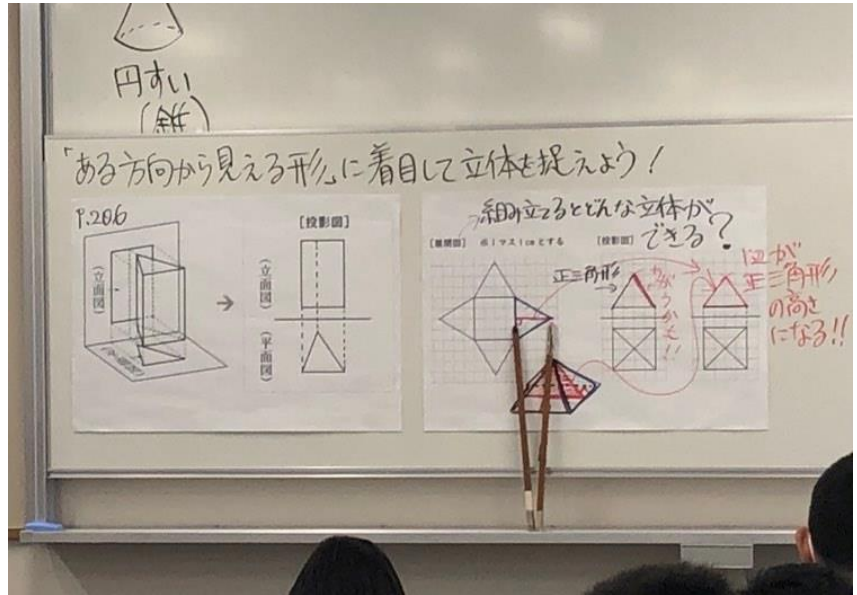 円すい
(錐)
「ある方向から見える形」に着目して立体を捉えよう!
P.206
[投影図]
(立面図)
(立面図)
(平面図)
組み立てるとどんな立体が
できる?
[展開図] ※1マス1cmとする
[投影図]
正三角形
ちがうかも!!
1辺が
正三角形
の高さ
になる!!